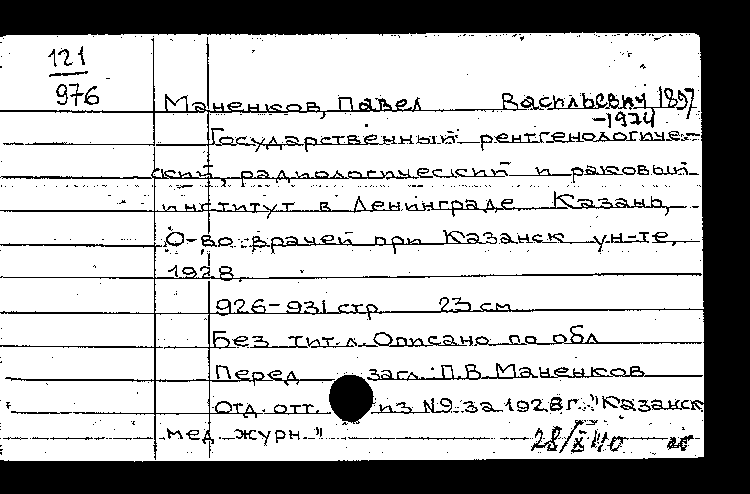 121
976
Маненков, Павел Васильевич 1897
-1974
Государственный рентгенологиче-
ский, радиологический и раковый
институт в Ленинграде. Казань,
О-во врачей при Казанск ун-те,
1928.
926-931 стр. 23 см
Без тит. л. Описано по обл
Перед загл.: П.В. Маненков
Отд. отт. из №9 за 1928 г. "Казанск
мед журн."
28/X 40